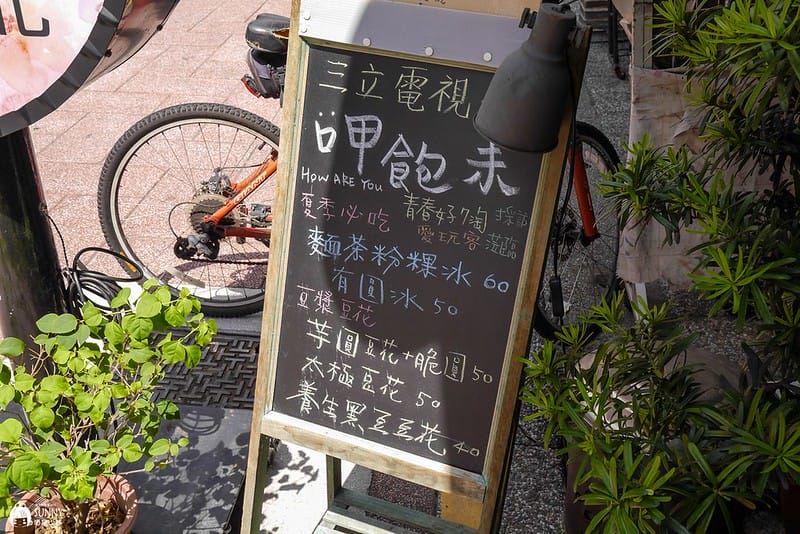 三立電視
呷飽未
HOW ARE YOU
夏季必吃 青春好7淘 採訪
愛玩客 蒞臨
麵茶粉粿冰 60
有圓冰 50
豆漿豆花
芋圓豆花+脆圓 50
太極豆花 50
養生黑豆豆花 40
SUNNY